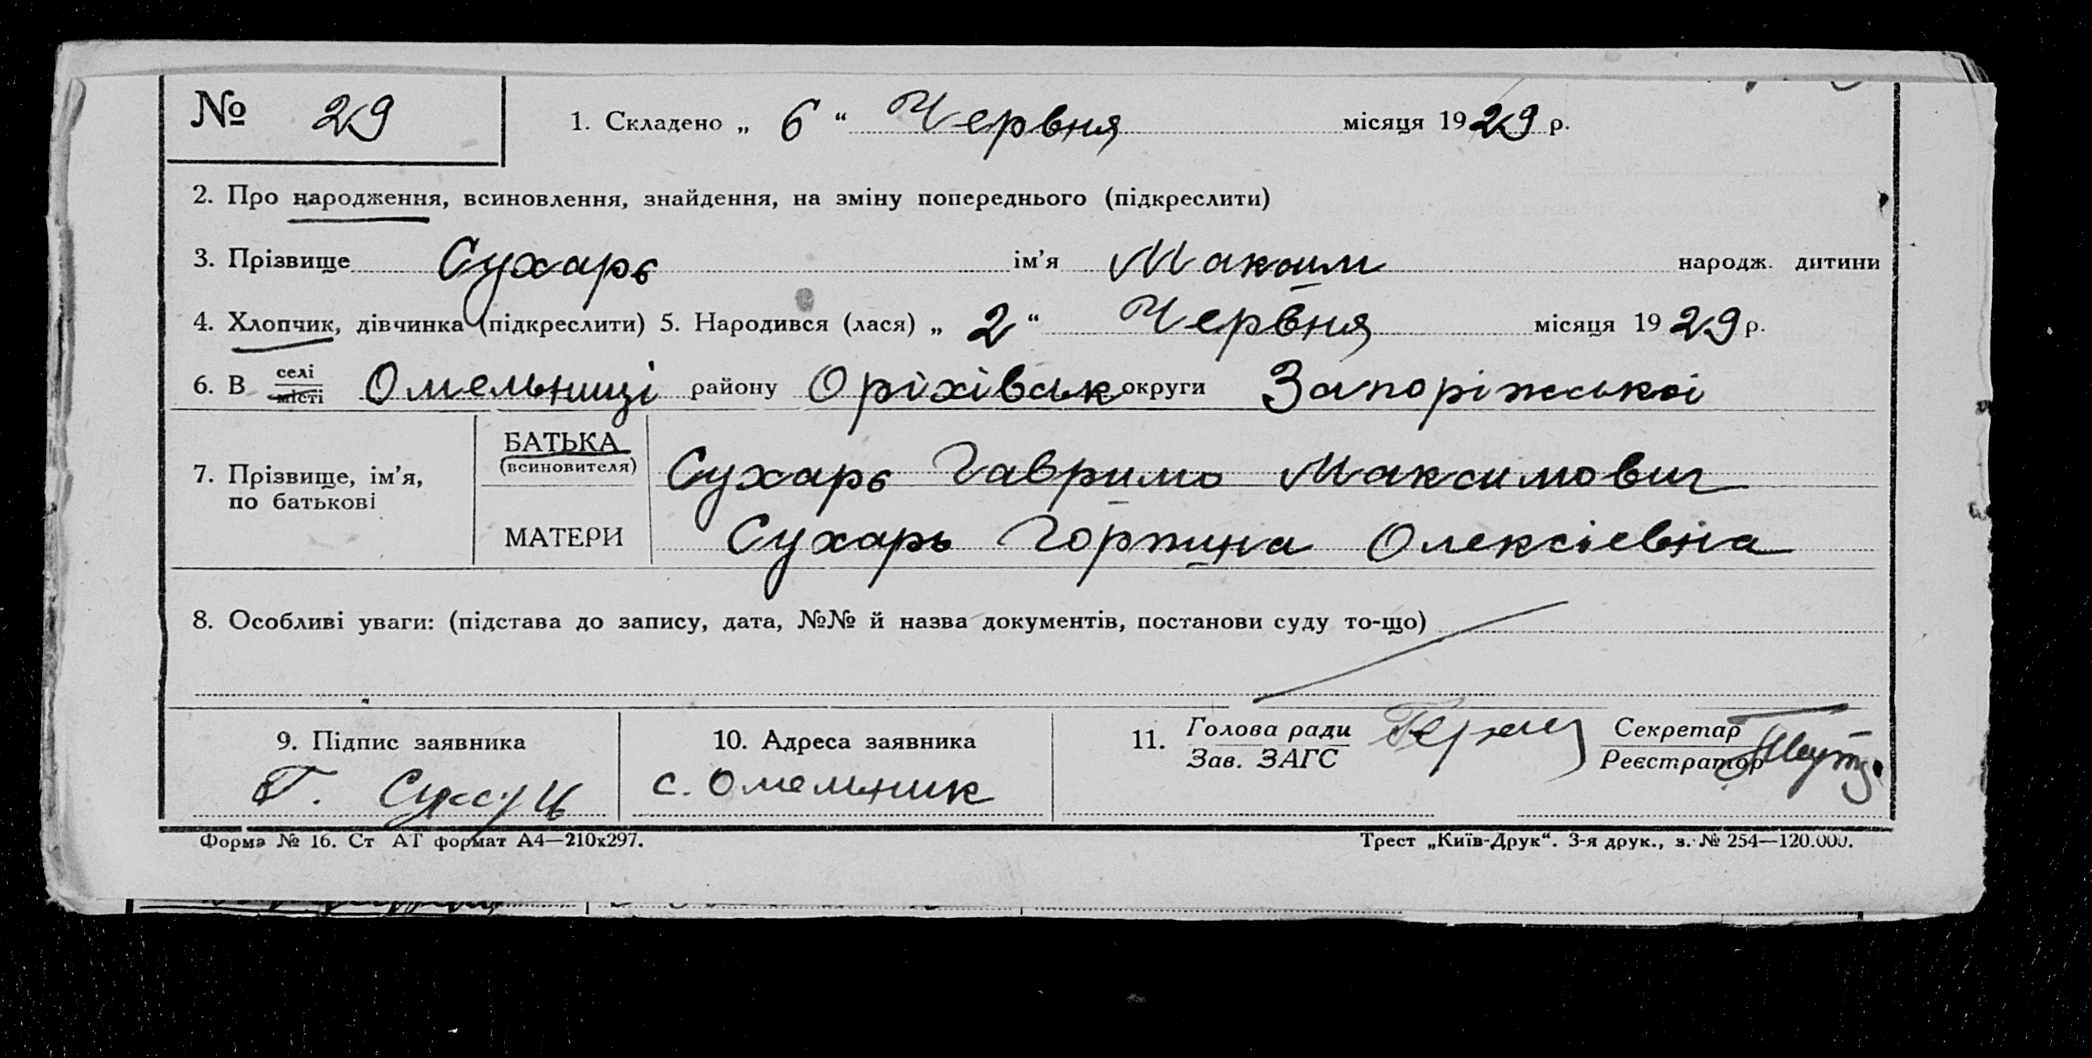 № 29 1. Складено „ 6 “ Червня місяця 1929 р.
2. Про народження, всиновлення, знайдення, на зміну попереднього (підкреслити)
3. Прізвище Сухарь ім’я Максим народж. дитини
4. Хлопчик, дівчинка (підкреслити) 5. Народився (лася) „ 2 “ Червня місяця 1929 р.
6. В селі місті Омельниці району Оріхівськ округи Запоріжської
7. Прізвище, ім’я, по батькові
БАТЬКА (всиновителя) Сухарь Гаврило Максимович
МАТЕРИ Сухарь Горпина Олексіевна
8. Особливі уваги: (підстава до запису, дата, №№ й назва документів, постанови суду то-що)
9. Підпис заявника 10. Адреса заявника 11. Голова ради Секретар
Зав. ЗАГС Реєстратор
Г. с. Омельник
Форма № 16. Ст АТ формат А4—210х297. Трест „Київ-Друк“. 3-я друк., з. № 254—120.000.